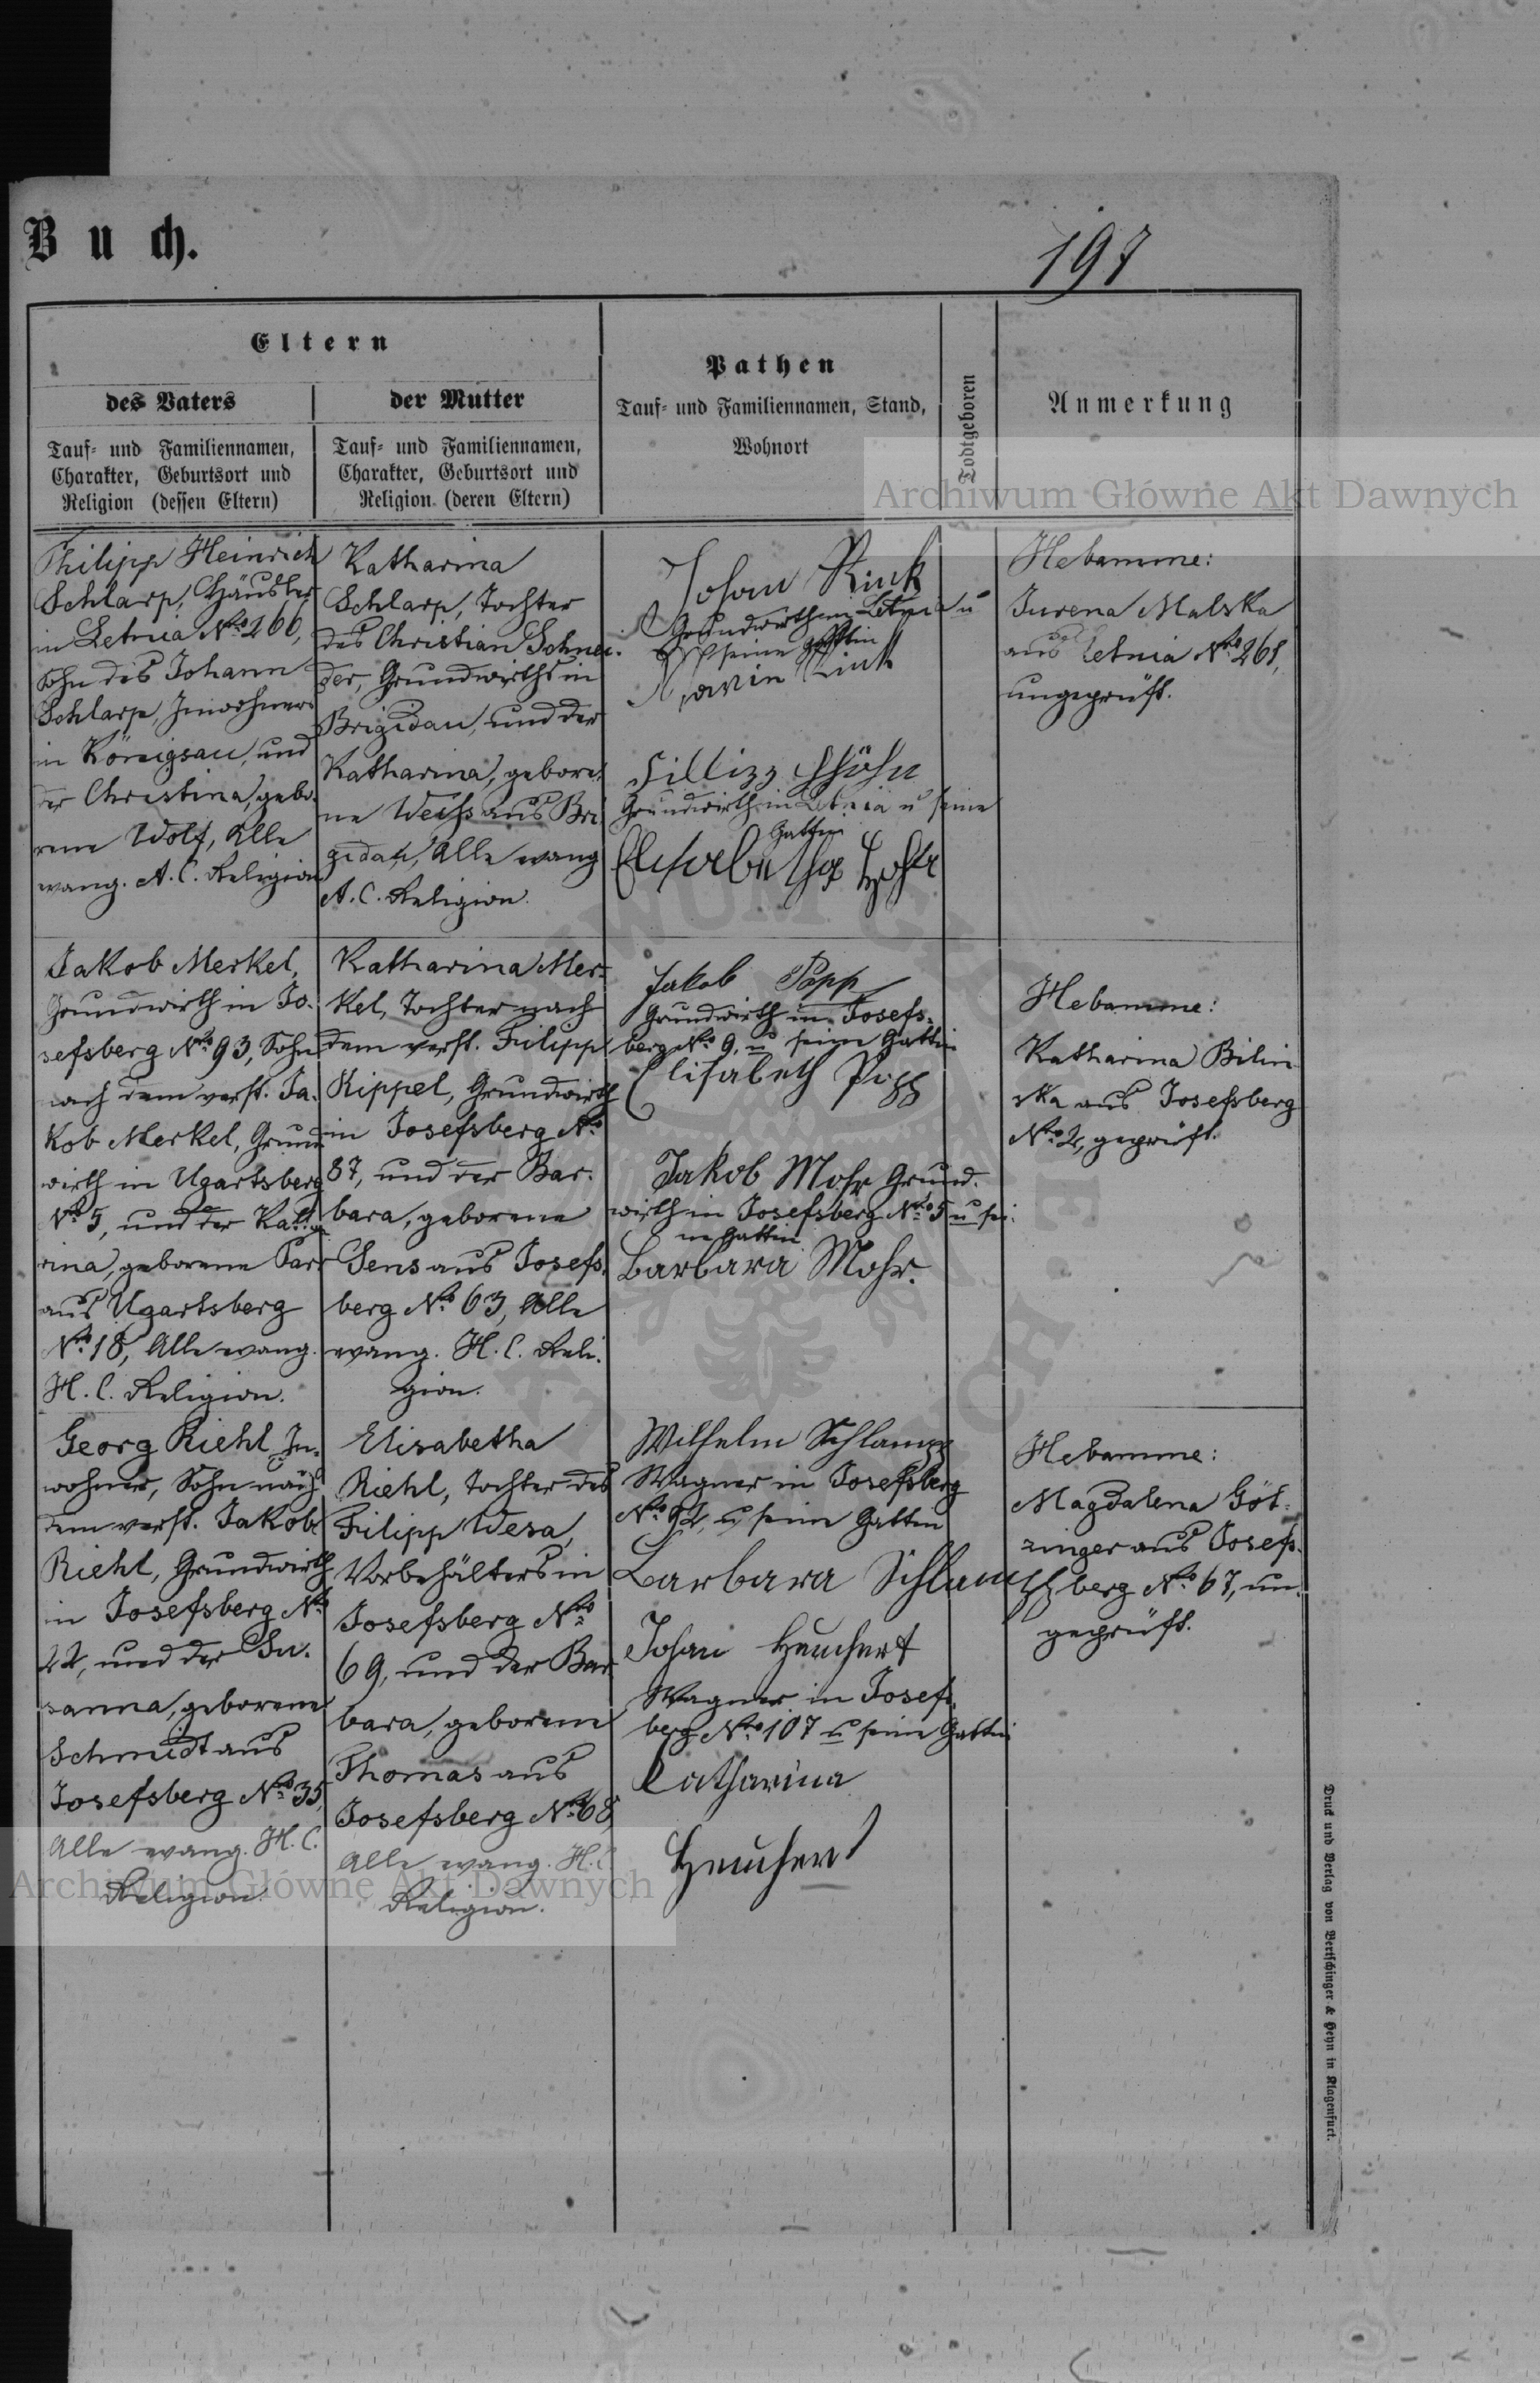 Buch.
197
Eltern
des Vaters
Tauf- und Familiennamen,
Charakter, Geburtsort und
Religion (dessen Eltern)
der Mutter
Tauf- und Familiennamen,
Charakter, Geburtsort und
Religion. (deren Eltern)
Pathen
Tauf- und Familiennamen, Stand,
Wohnort
Todtgeboren
Anmerkung
Archiwum Główne Akt Dawnych
Philipp Heinrich
Schlarp, Häusler
in Letnia No 266,
Sohn des Johann
Schlarp, Inwohners
in Königsau, und
der Christina, gebo-
rene Wolf, Alle
evang. A. C. Religion
Katharina
Schlarp, Tochter
des Christian Schnei-
der, Grundwirths in
Brigidau, und der
Katharina, gebore-
ne Weiss aus Bri-
gidau, Alle evang
A. C. Religion.
Johan Rink
Grundwirth in Letnia u
seine Gattin
Rink
Fillipp Höhn
Grundwirth in Letnia u seine
Gattin
Elisabetha
Hebamme:
Jurena Malska
aus Letnia No 268,
ungeprüft.
Jakob Merkel,
Grundwirth in Jo-
sefsberg No 93, Sohn
nach dem verst. Ja-
kob Merkel, Grund-
wirth in Ugartsberg
No 5, und der Katha-
rina, geborene
aus Ugartsberg
No 18, Alle evang.
H. C. Religion.
Katharina Mer-
kel, Tochter nach
dem verst. Filipp
Kippel, Grundwirth
in Josefsberg No
87, und der Bar-
bara, geborene
Sens aus Josefs-
berg No 63, Alle
evang. H. C. Reli-
gion.
Jakob Popp
Grundwirth in Josefs-
berg No 9, u seine Gattin
Elisabeth Popp
Jakob Mohr Grund-
wirth in Josefsberg No 5 u sei-
ne Gattin
Barbara Mohr.
Hebamme:
Katharina Bilin-
ska aus Josefsberg
No 2, geprüft.
Georg Riehl, In-
wohner, Sohn nach
dem verst. Jakob
Riehl, Grundwirth
in Josefsberg No
22, und der Su-
sanna, geborene
Schmidt aus
Josefsberg No 35,
Alle evang. H. C.
Religion.
Elisabetha
Riehl, Tochter des
Filipp Wesa,
Vorbehälters in
Josefsberg No
69, und der Bar-
bara, geborene
Thomas aus
Josefsberg No 68,
Alle evang. H. C
Religion.
Wilhelm Schlampp
Wagner in Josefsberg
No 92, u seine Gattin
Barbara Schlampp
Johan Heuchert
Wagner in Josefs-
berg No 107 u seine Gattin
Catharina
Heuchert
Hebamme:
Magdalena Göt-
zinger aus Josefs-
berg No 67, un-
geprüft.
Archiwum Główne Akt Dawnych
Druck und Verlag von Bertschinger & Heyn in Klagenfurt.